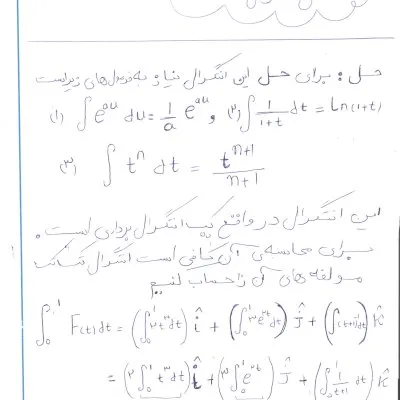 حل : برای حل این انتگرال نیاز به فرمول‌های زیر است
(۱) ∫ e^{au} du = 1/a e^{au} و (۲) ∫ 1/(1+t) dt = Ln(1+t)
(۳) ∫ t^n dt = t^{n+1}/(n+1)
این انتگرال در واقع یک انتگرال برداری است.
برای محاسبه‌ی آن کافی است انتگرال تک تک
مولفه‌های آن را حساب کنیم
∫₀¹ F(t) dt = (∫₀¹ ۲t^۳ dt) î + (∫₀¹ ۳e^{۲t} dt) ĵ + (∫ (t+1)^{-1} dt) k̂
= (۲∫₀¹ t^۳ dt) î + (۳∫₀¹ e^{۲t}) ĵ + (∫₀¹ 1/(t+1) dt) k̂